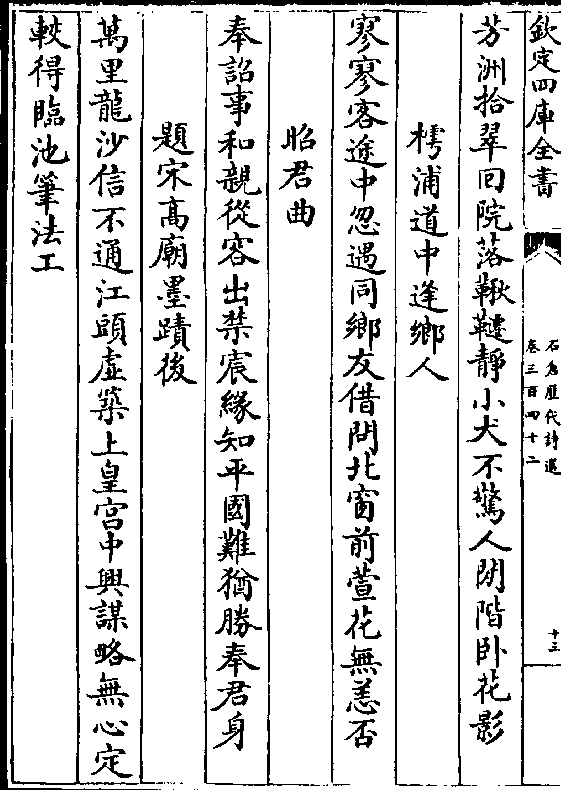 欽定四庫全書
石倉歷代詩選
卷三百四十二
十三
芳洲拾翠回院落鞦韆靜小犬不驚人閉階卧花影
樗浦道中逢鄉人
寥寥客途中忽遇同鄉友借問北窗前萱花無恙否
昭君曲
奉詔事和親從容出禁宸緣知平國難猶勝奉君身
題宋髙廟墨蹟後
萬里龍沙信不通江頭虚築上皇宫中興謀略無心定
較得臨池筆法工